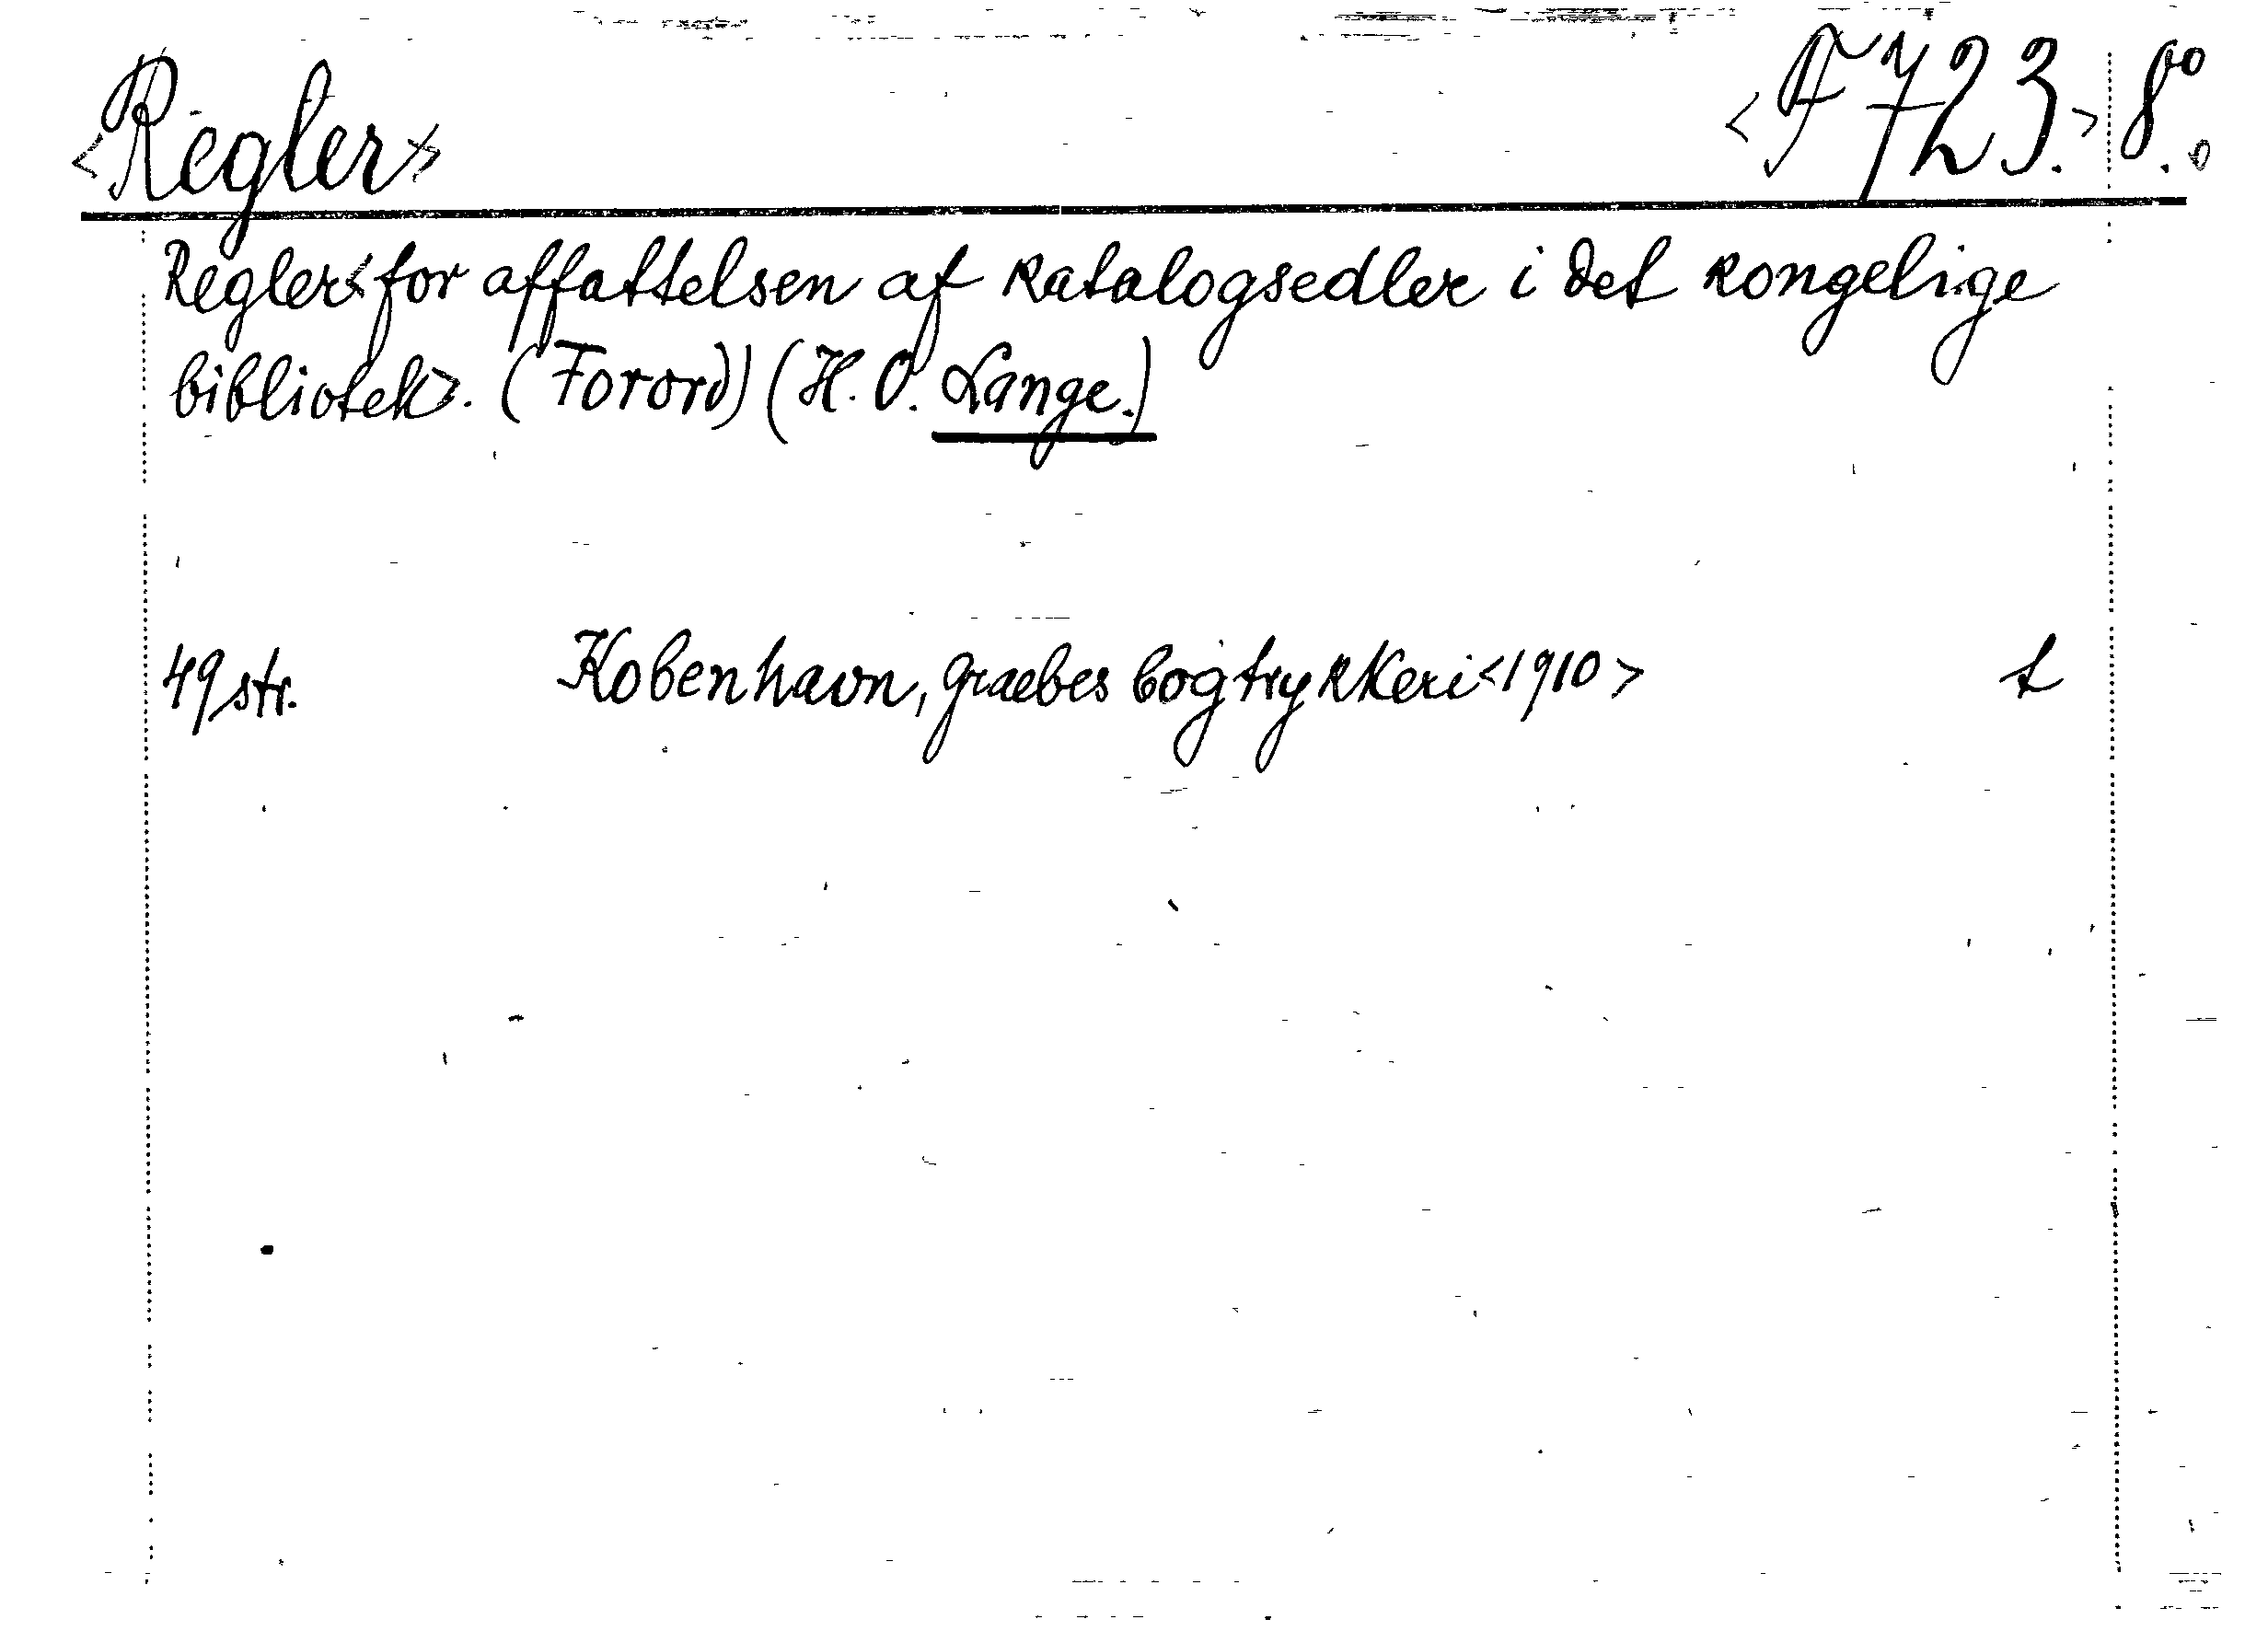 <Regler> <F 723.> 8º.
Regler <for affattelsen af katalogsedler i det kongelige
bibliotek>. (Forord) (H. O. Lange.)
49 str. Kobenhavn, Graebes bogtrykkeri <1910> t